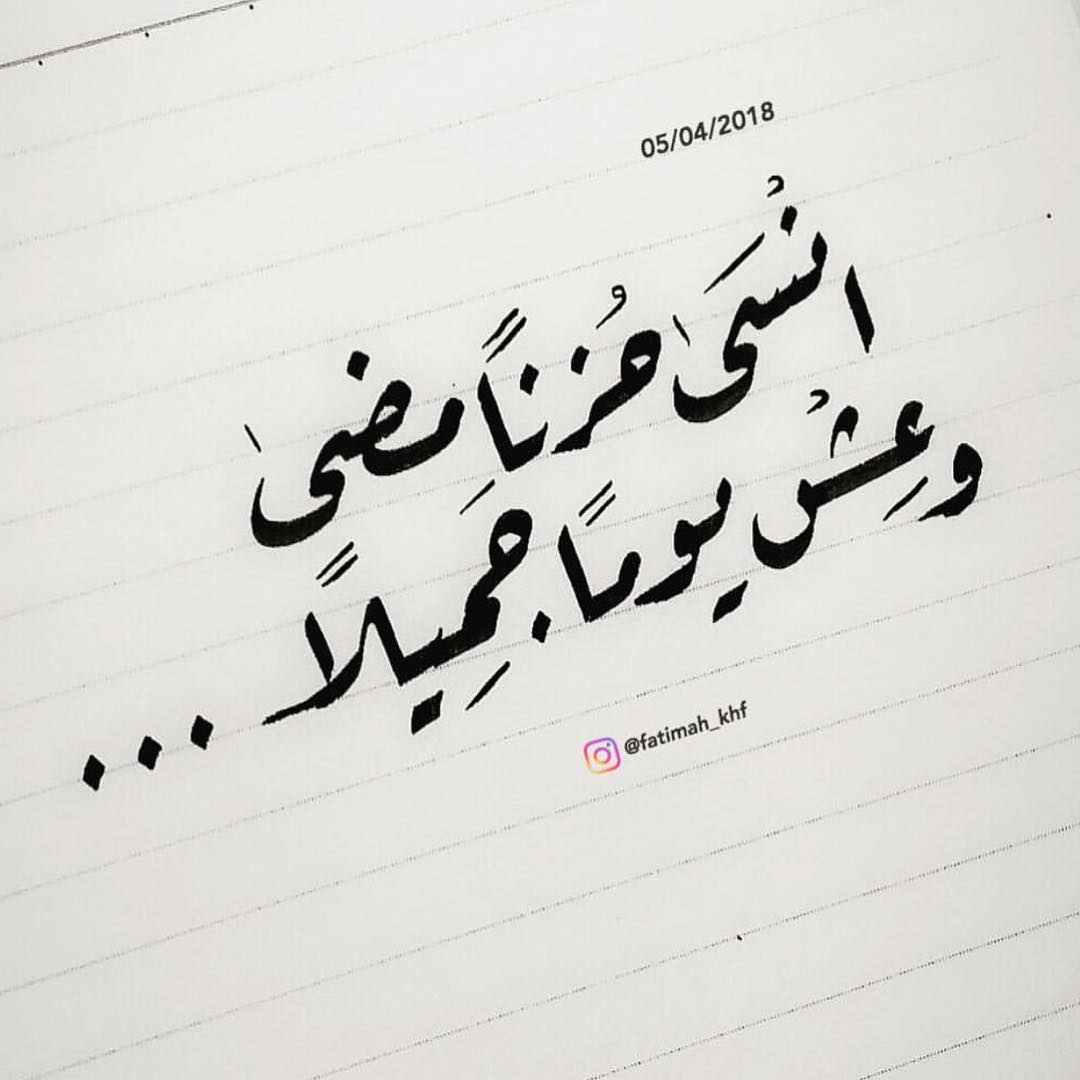 05/04/2018
انْسَىٰ حُزناً مضىٰ
وعِشْ يوماً جَمِيلاً ...
@fatimah_khf